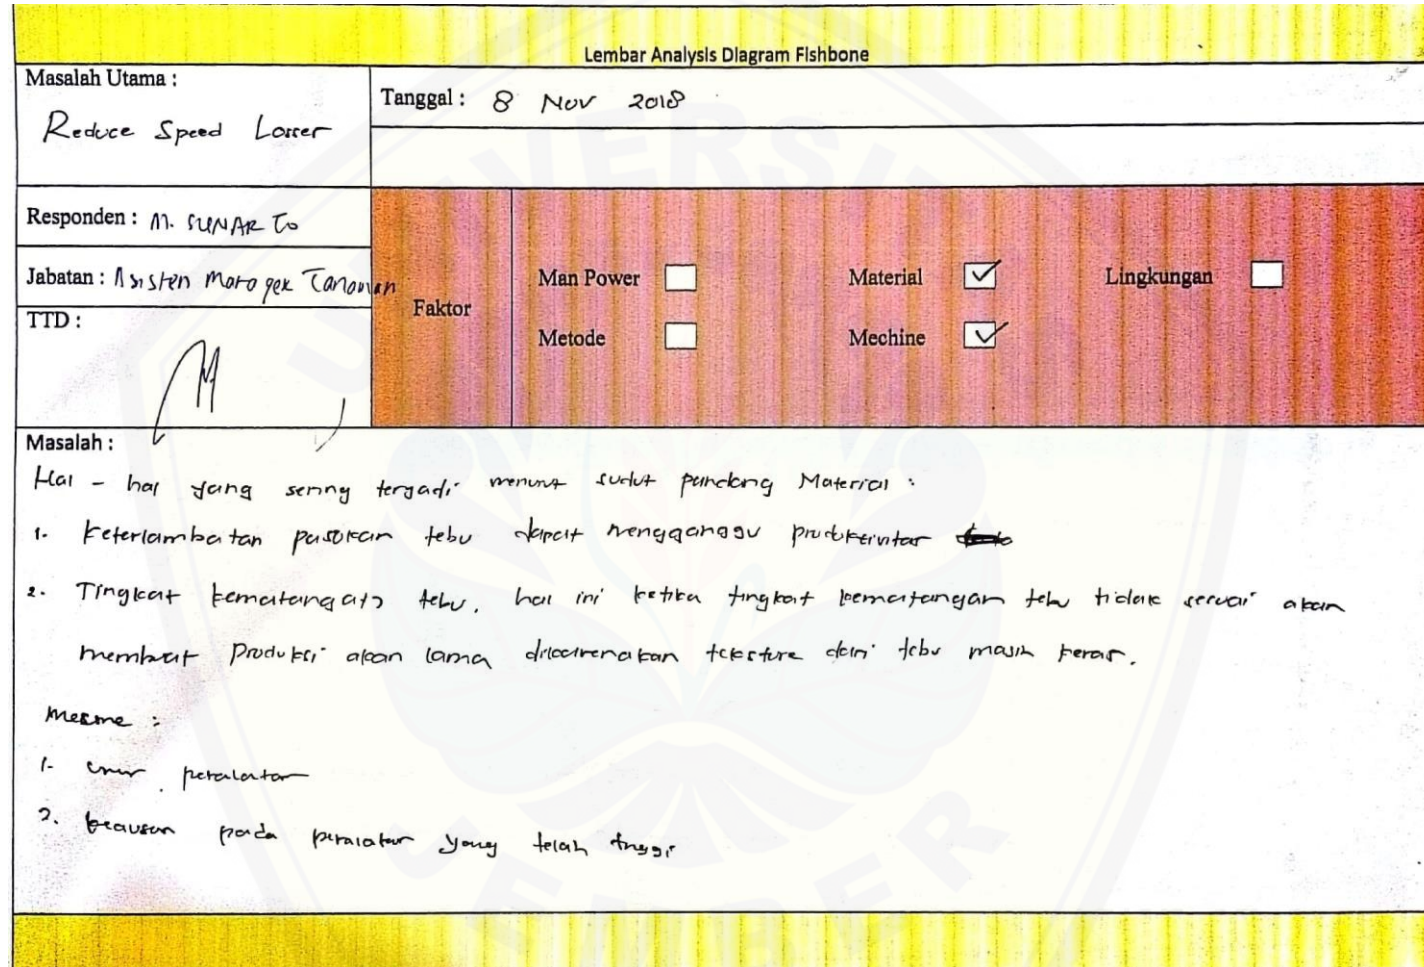 Lembar Analysis Diagram Fishbone
Masalah Utama :
Reduce Speed Losser
Tanggal : 8 Nov 2018
Responden : M. SUNARTO
Jabatan : Asisten Manager Tanaman
TTD :
Faktor
Man Power
Material ✓
Lingkungan
Metode
Mechine ✓
Masalah :
Hal - hal yang sering tergadi menurut sudut pandang Material :
1. Keterlambatan pasokan tebu dapat mengganggu produktivitas
2. Tingkat kematangan tebu, hal ini ketika tingkat kematangan tebu tidak sesuai akan
membuat produksi akan lama dikarenakan teksture dari tebu masih keras.
Mesine :
1. umur peralatan
2. keausan pada peralatan yang telah tinggi
UNIVERSITAS
JEMBER